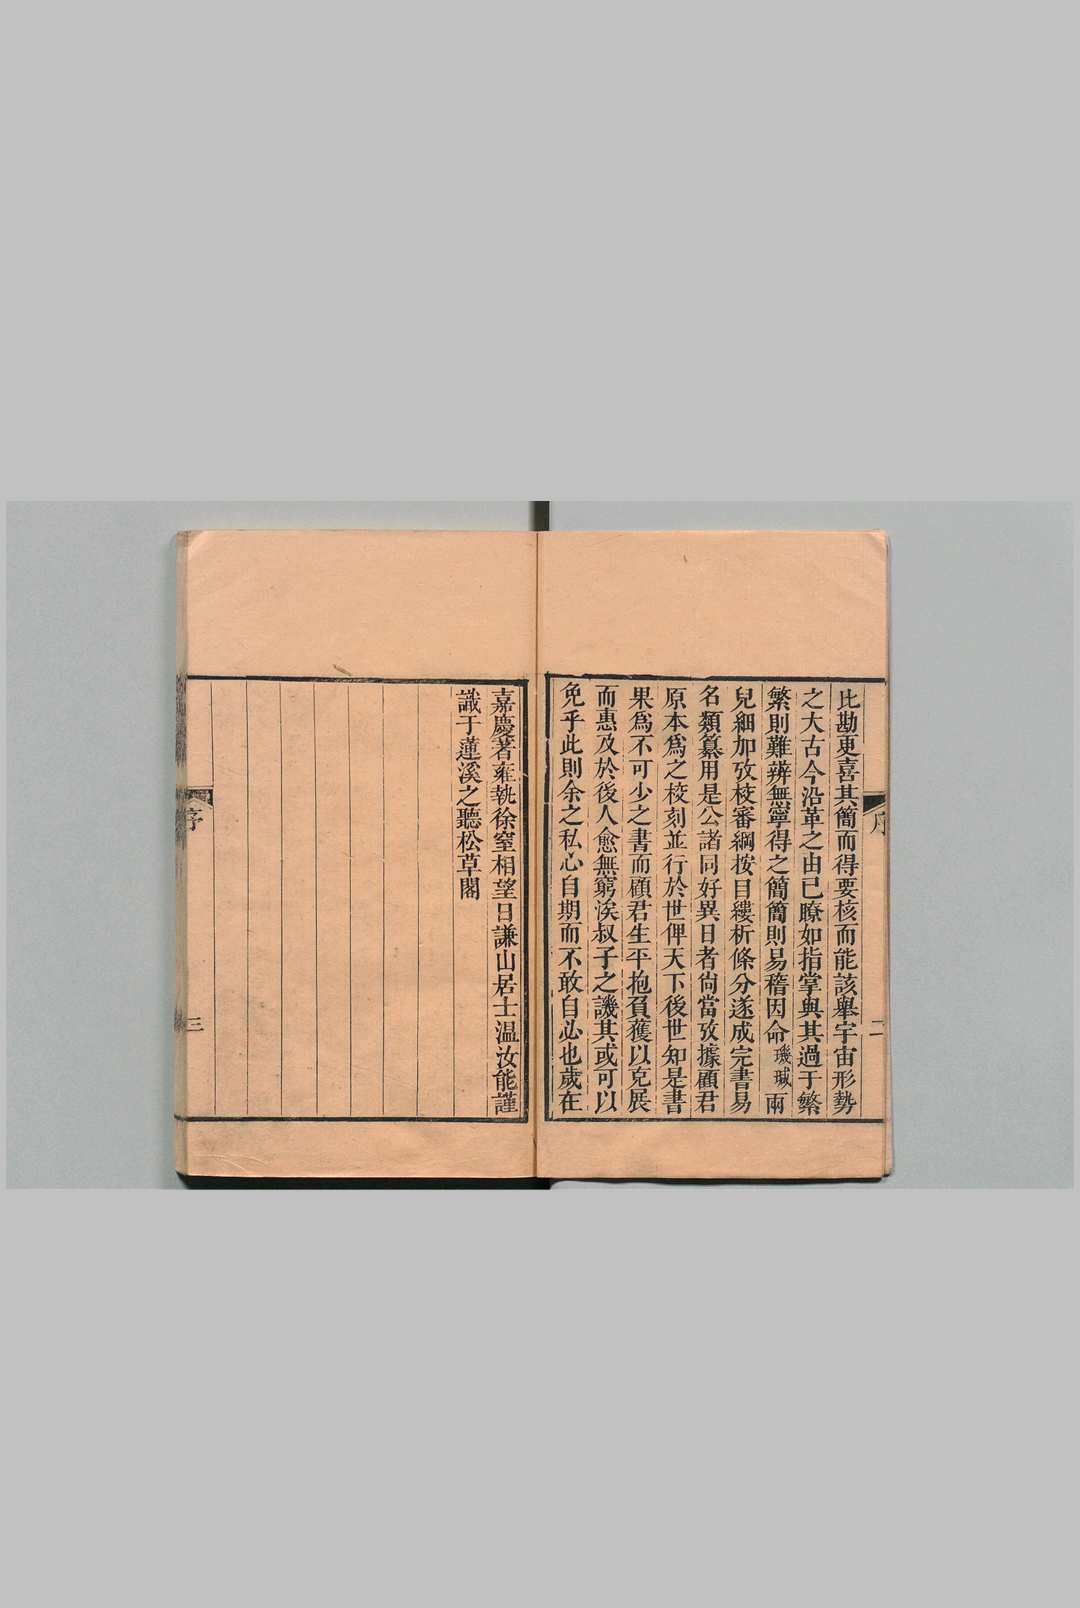 序
二
比勘更喜其簡而得要核而能該舉宇宙形勢
之大古今沿革之由已瞭如指掌與其過于繁
繁則難辨無寧得之簡簡則易稽因命璣瑊兩
兒細加攷校審綱按目縷析條分遂成完書易
名類纂用是公諸同好異日者尙當攷據顧君
原本爲之校刻並行於世俾天下後世知是書
果爲不可少之書而顧君生平抱負獲以克展
而惠及於後人愈無窮涘叔子之譏其或可以
免乎此則余之私心自期而不敢自必也歲在
嘉慶著雍執徐窒相望日謙山居士温汝能謹
識于蓮溪之聽松草閣
序
三